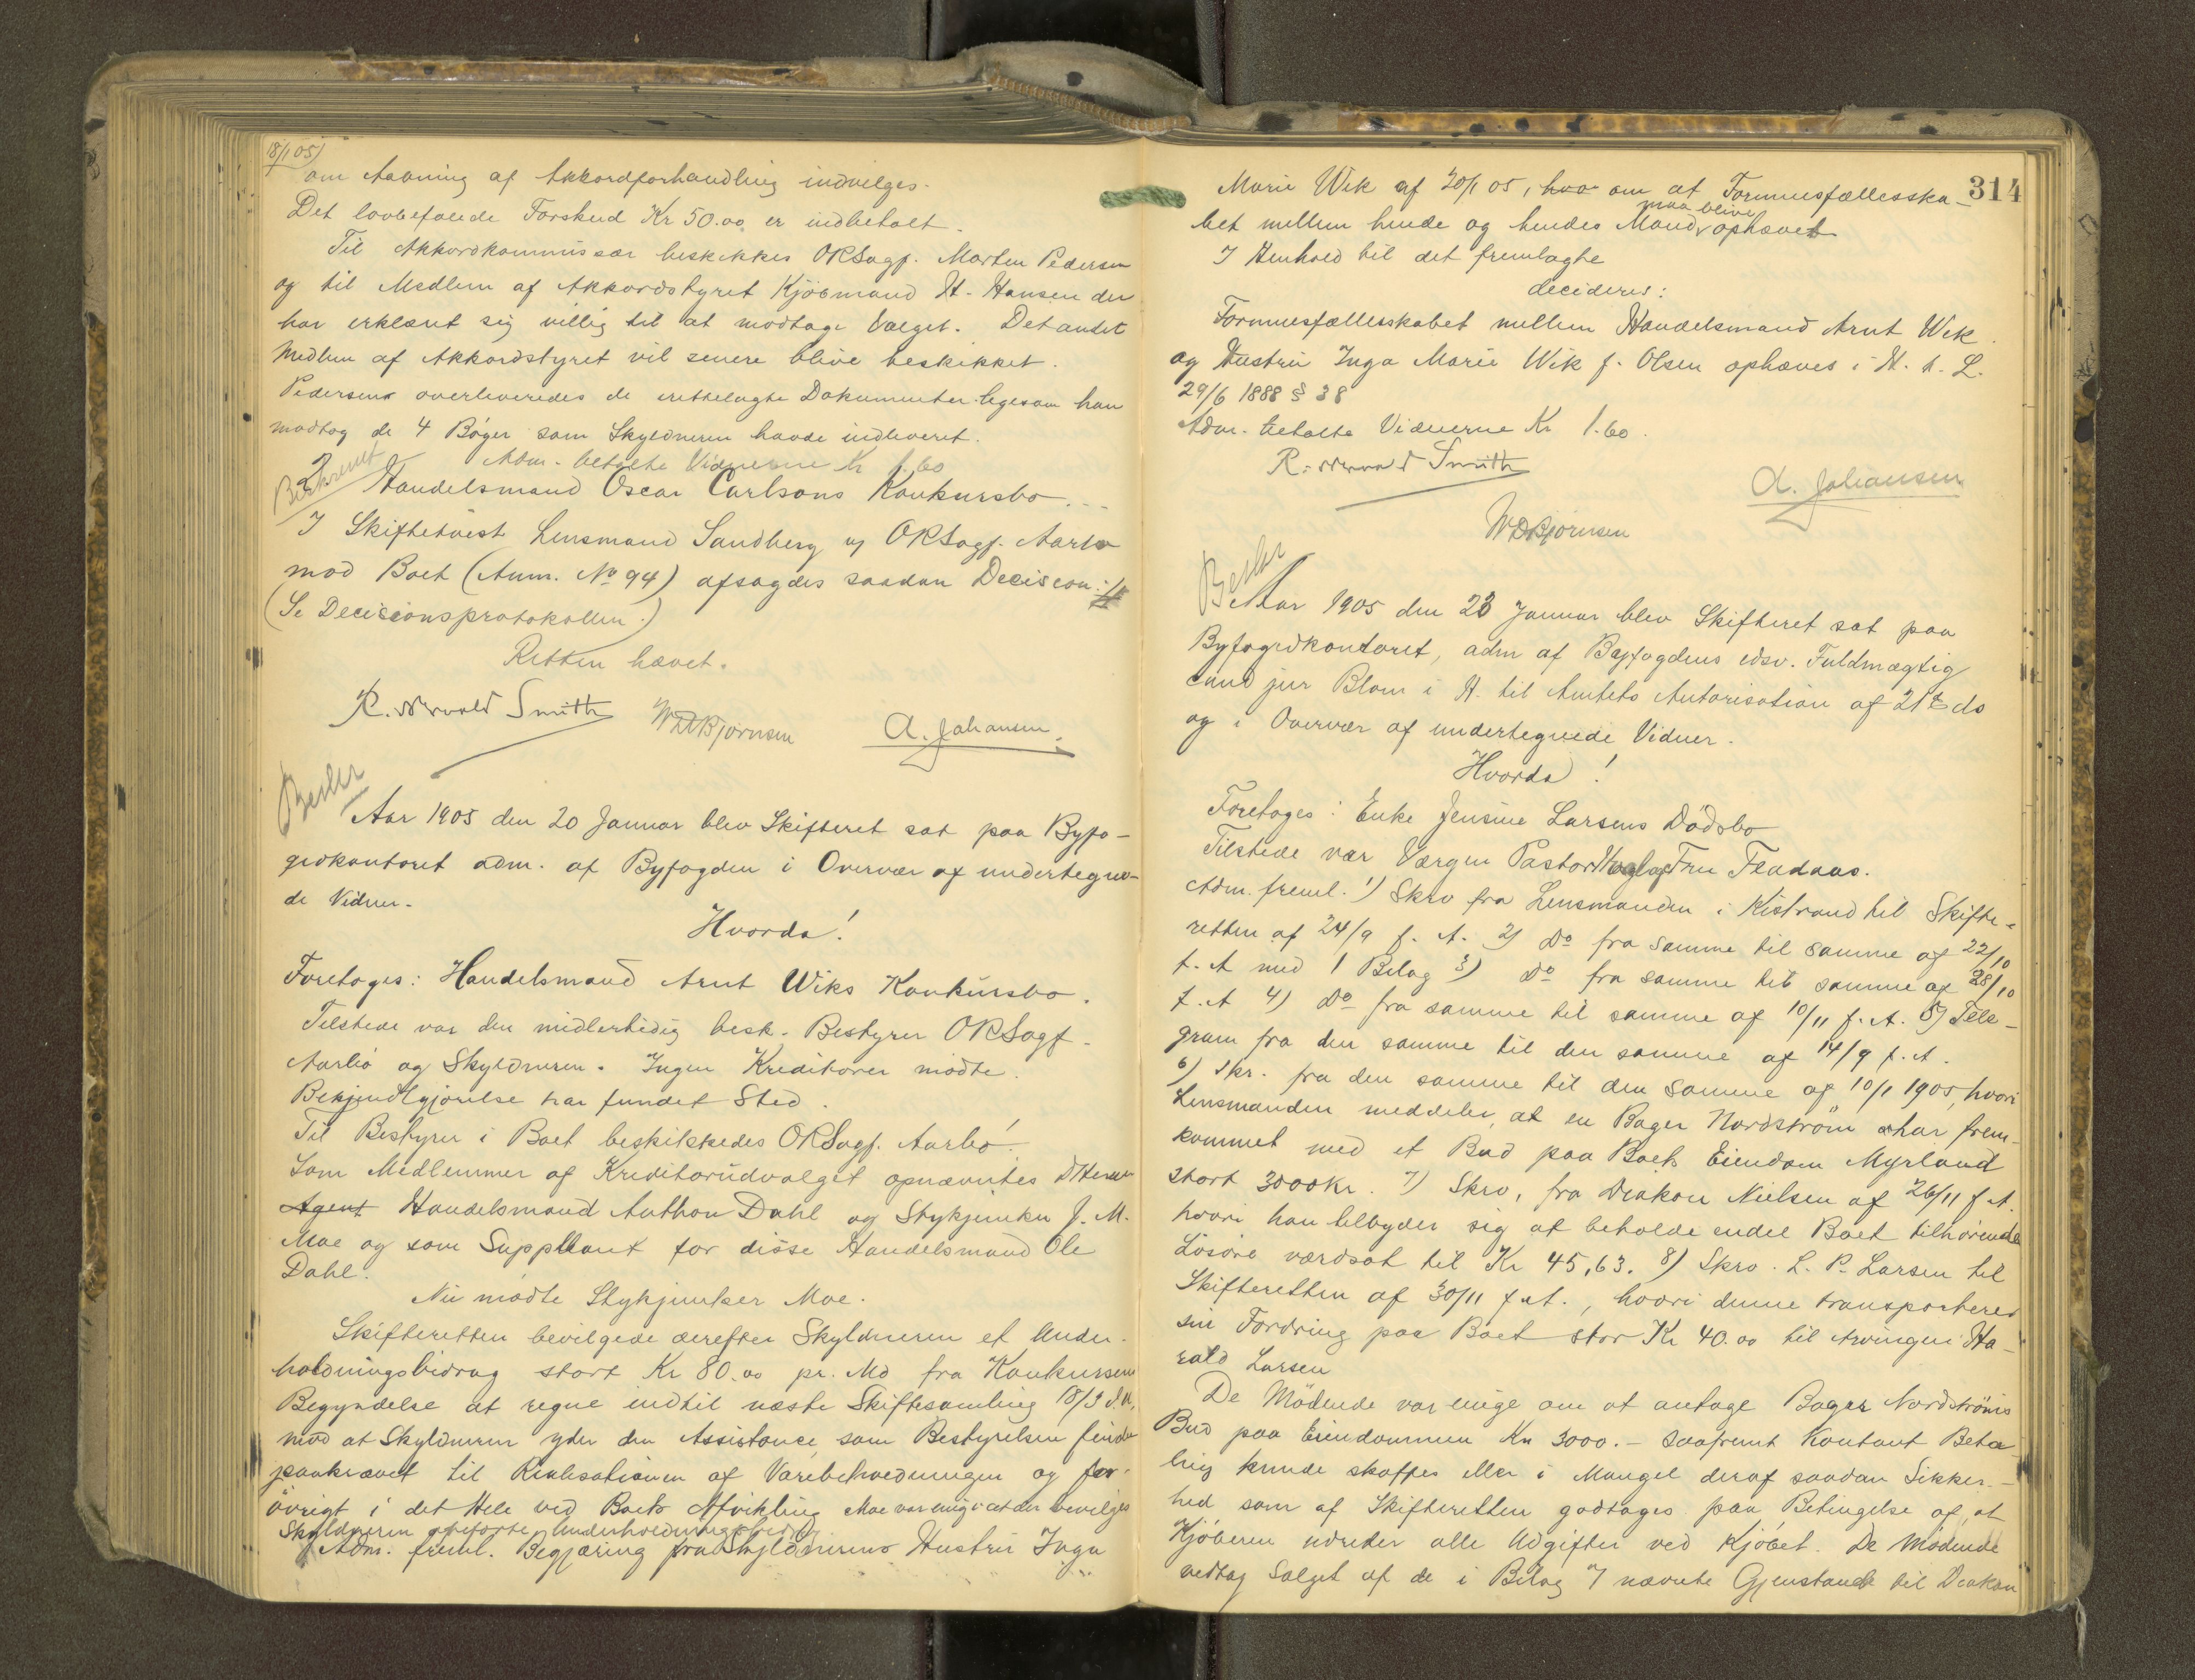 18/1 05)
om Aabning af Akkordforhandling indvilges.
Det lovbefalede Forskud Kr 50.00 er indbetalt.
Til Akkordkommissær beskikkes ORSagf. Morten Pedersen
og til Medlem af Akkordstyret Kjöbmand H. Hansen der
har erklæret sig villig til at modtage Valget. Det andet
Medlem af Akkordstyret vil senere blive beskikket.
Pedersen overleveredes de fremlagte Dokumenter ligesom han
modtog de 4 Böger som Skyldneren havde indleveret.
Adm. betalte Vidnerne Kr 1.60
2 Handelsmand Oscar Carlsons Konkursbo
I Skiftetvist Lensmand Sandberg og ORSagf. Aarbo
mod Boet (Anm. No 94) afsagdes saadan Decision:
(Se Decisionsprotokollen.)
Retten hævet.
R. Smith WDBjörnsen A. Johansen.
Beskr
Aar 1905 den 20 Januar blev Skifteret sat paa Byfo-
gedkontoret adm. af Byfogden i Overvær af undertegne-
de Vidner.
Hvorda!
Foretoges: Handelsmand Arnt Wiks Konkursbo.
Tilstede var den midlertidig besk. Bestyrer ORSagf.
Aarbö og Skyldneren. Ingen Kreditorer mödte.
Bekjendtgjörelse har fundet Sted.
Til Bestyrer i Boet beskikkedes ORSagf. Aarbö.
Som Medlemmer af Kreditorudvalget opnævntes DHerrer
Agent Handelsmand Anthon Dahl og Stykjunker J. M.
Moe og som Suppleant for disse Handelsmand Ole
Dahl.
Nu mödte Stykjunker Moe.
Skifteretten bevilgede derefter Skyldneren et Under-
holdningsbidrag stort Kr 80.00 pr. Md fra Konkursens
Begyndelse at regne indtil næste Skiftesamling 18/3 d.A,
mod at Skyldneren yder den Assistance som Bestyrelsen finder
paakrævet til Realisationen af Varebeholdningen og for-
övrigt i det Hele ved Boets Afvikling Moe var enig i at der bevilges
Skyldneren Underholdningsbidrag
Adm. freml. Begjæring fra Skyldnerens Hustru Inga
314
Marie Wik af 20/1 05, hvor om at Formuesfællesska-
maa blive
bet mellem hende og hendes Mand ophævet
I Henhold til det fremlagte
decideres:
Formuesfællesskabet mellem Handelsmand Arnt Wik
og Hustru Inga Marie Wik f. Olsen ophæves i H. t. L.
29/6 1888 § 38
Adm. betalte Vidnerne Kr 1.60.
R. Smith
A. Johansen
WDBjörnsen
Beskr
Aar 1905 den 23 Januar blev Skifteret sat paa
Byfogedkontoret, adm af Byfogdens edsv. Fuldmægtig
cand jur Blom i H. til Amtets Autorisation af 21de ds
og i Overvær af undertegnede Vidner.
Hvorda!
Foretoges: Enke Jensine Larsens Dödsbo
Tilstede var Værgen Pastor og Fru Fladaas.
Adm. freml. 1) Skrv fra Lensmanden i Kistrand til Skifte-
retten af 24/9 f. A. 2) Do fra samme til samme af 22/10
f. A med 1 Bilag 3) Do fra samme til samme af 28/10
f. A 4) Do fra samme til samme af 10/11 f. A. 5) Tele-
gram fra den samme til den samme af 14/9 f. A.
6) Skr. fra den samme til den samme af 10/1 1905, hvori
Lensmanden meddeler, at en Bager Nordström har frem-
kommet med et Bud paa Boets Eiendom Myrland
stort 3000kr. 7) Skrv, fra Diakon Nielsen af 26/11 f A.
hvori han tilbyder sig at beholde endel Boet tilhörende
Lösöre værdsat til Kr 45,63. 8) Skrv. L. P. Larsen til
Skifteretten af 30/11 f.A., hvori denne transporterer
sin Fordring paa Boet stor Kr 40.00 til Arvingen Ha-
rald Larsen
De Mödende var enige om at antage Bager Nordströms
Bud paa Eiendommen Kr 3000.- saafremt Kontant Beta-
ling kunde skaffes eller i Mangel deraf saadan Sikker-
hed som af Skifteretten godtages paa Betingelse af, at
Kjöberen udreder alle Udgifter ved Kjöbet. De Mödende
vedtog Salget af de i Bilag 7 nævnte Gjenstande til Diakon